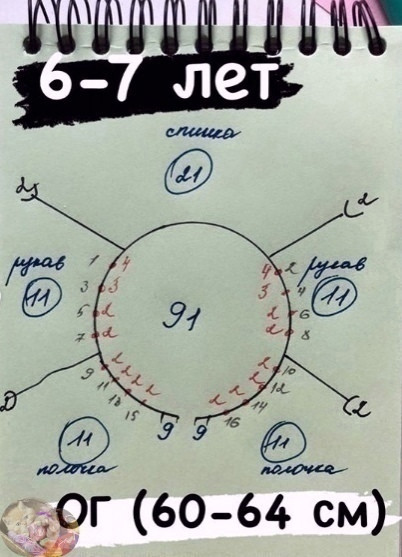 6-7 лет
спинка
21
2
2
рукав
11
рукав
11
1 4
4 2
3 3
3 4
5 2
2 6
7 2
2 8
91
9 2
2 10
11 2
2 12
13 2
2 14
15 2
2 16
9 9
2
2
11
полочка
11
полочка
ОГ (60-64 см)